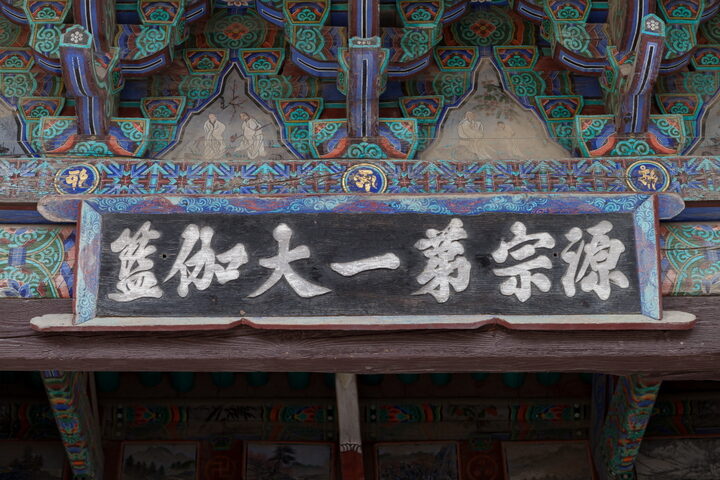 源宗第一大伽藍